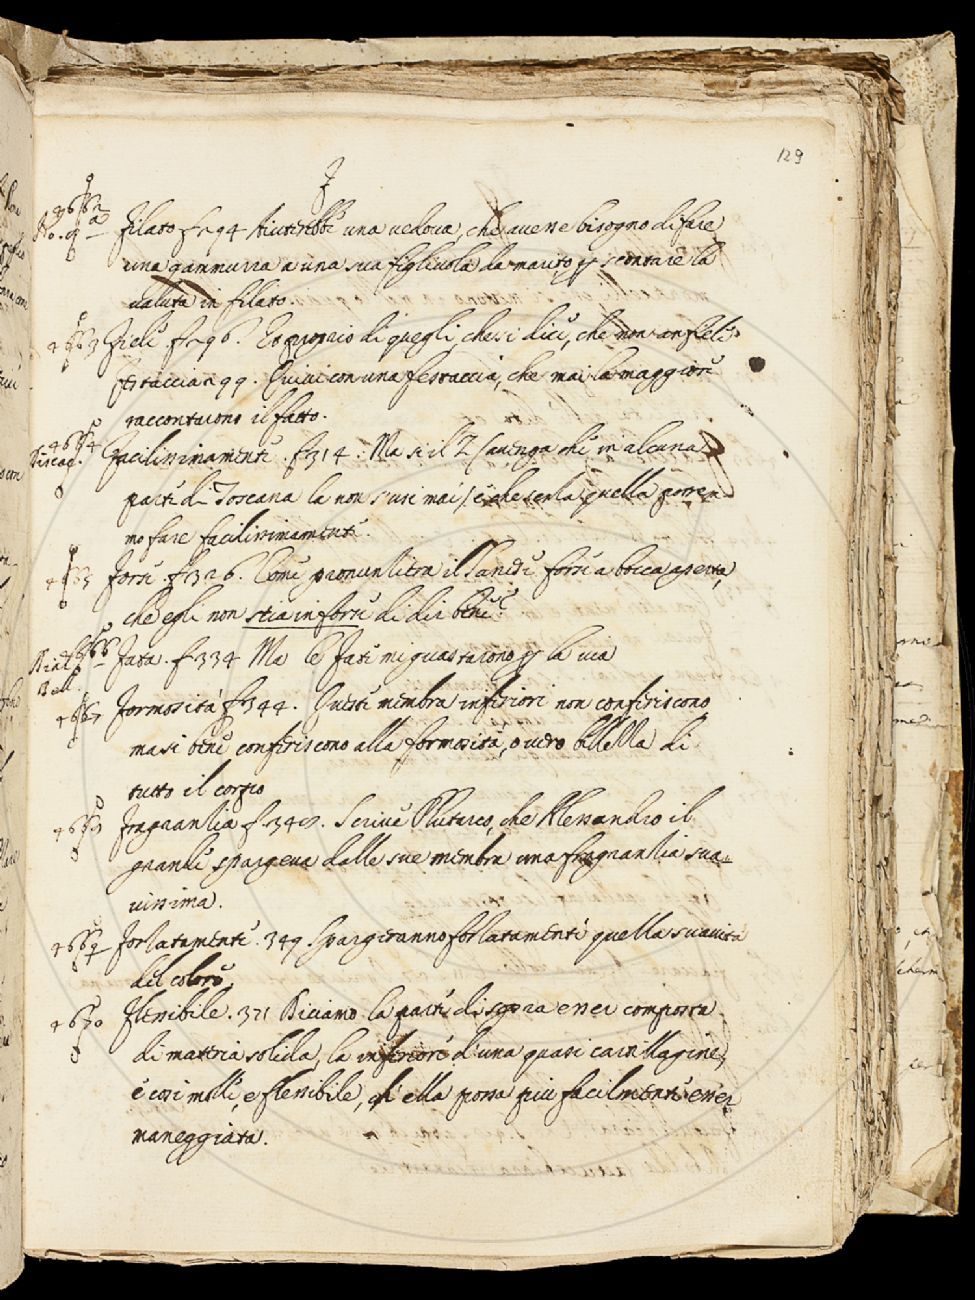 129
F
Filato f. 294 Aiuterebbe una vedova, che avesse bisogno di fare
una gammurra a una sua figliuola da marito p scontare la
valuta in filato.
4663 Fieli f. 296. È proprio di quegli, che si dice, che non an fieli
Festaccia 299. Quivi con una festaccia, che mai la maggiore
raccontarono il fatto.
4664 Facilissimamente. f. 314. Ma se il Z (avenga che in alcuna
parte di Toscana la non s'usi mai) è che senla quella possia
mo fare facilissimamente.
4665 Forse f. 326. Come pronunlierà il Sanese forse a bocca aperta,
che egli non stia in forse di dir bene?
4666 Fata. f. 334 Ma le Fate mi guastarono p la via
4667 Formosità f. 344. Queste membra inferiori non conferiscono
ma si bene conferiscono alla formosità, o vero bellella di
tutto il corpo
Fragranlia f. 348. Scrive Plutarco, che Alessandro il
grande spargeva dalle sue membra una fragranlia sua
vissima.
Forlatamente. 349. Spargeranno forlatamente quella suavità
del colore
4670 Flessibile. 371 Diciamo la parte di sopra esser composta
di materia solida, la inferiore d'una quasi cartillagine,
e così molle, e flessibile, ch'ella possa più facilmente esser
maneggiata.